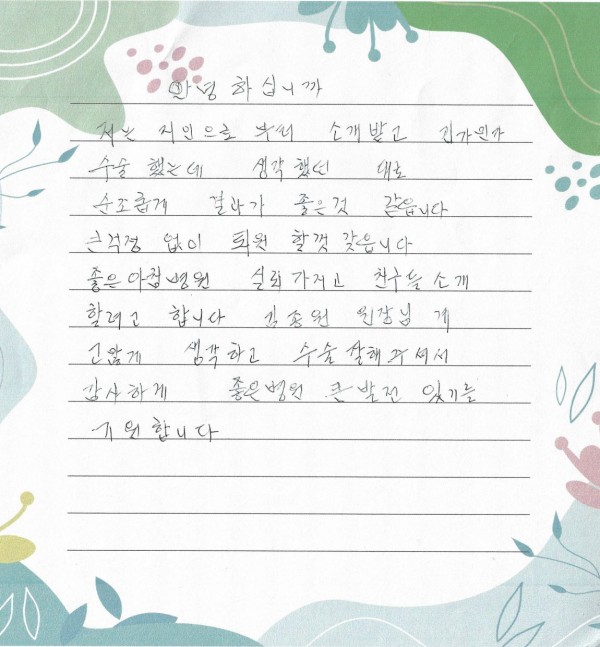 안녕 하십니까
저는 지인으로 부터 소개받고
수술 했는데 생각 했던 대로
순조롭게 결과가 좋은것 같읍니다
큰걱정 없이 퇴원 할껏 갖읍니다
좋은아침병원 실뢰 가지고 친구들 소개
할려고 합니다 김종원 원장님 게
고맙게 생각하고 수술 잘해주셔서
감사하게 좋은병원 큰 발전 있기를
기원합니다